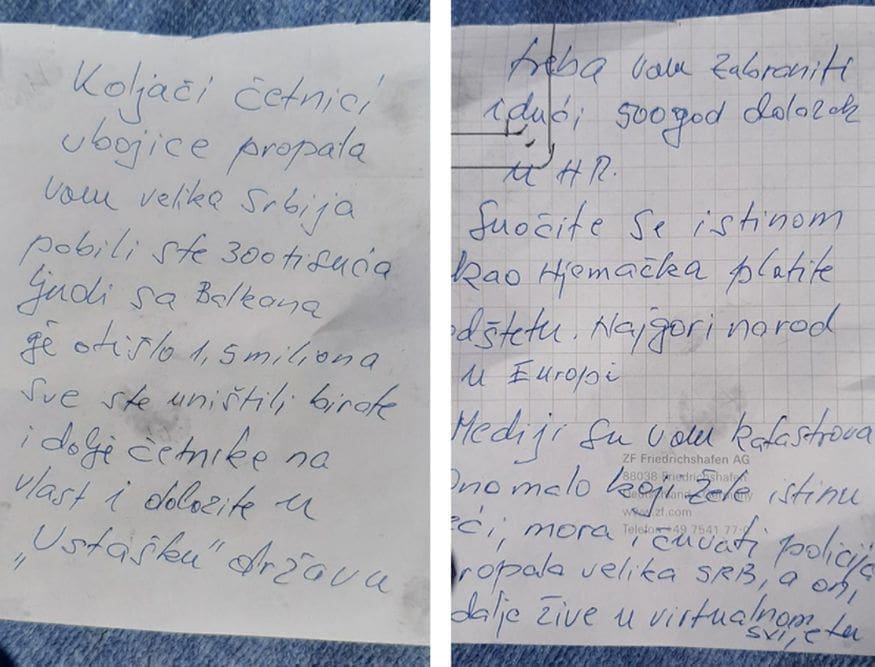 Koljači četnici
ubojice propala
vam velika Srbija
pobili ste 300 tisuća
ljudi sa Balkana
je otišlo 1,5 miliona
sve ste uništili birate
i dalje četnike na
vlast i dolazite u
„Ustašku" državu
treba vam zabraniti
idući 500 god dolazak
u HR.
Suočite se istinom
kao Njemačka platite
odštetu. Najgori narod
u Europi
Mediji su vam katastrova
Ono malo koji žele istinu
eći, mora i čuvati policija
ropala velika SRB, a oni
dalje žive u virtualnom
svijetu
ZF Friedrichshafen AG
88038 Friedrichshafen
Deutschland
www.zf.com
Telefon +49 7541 77-